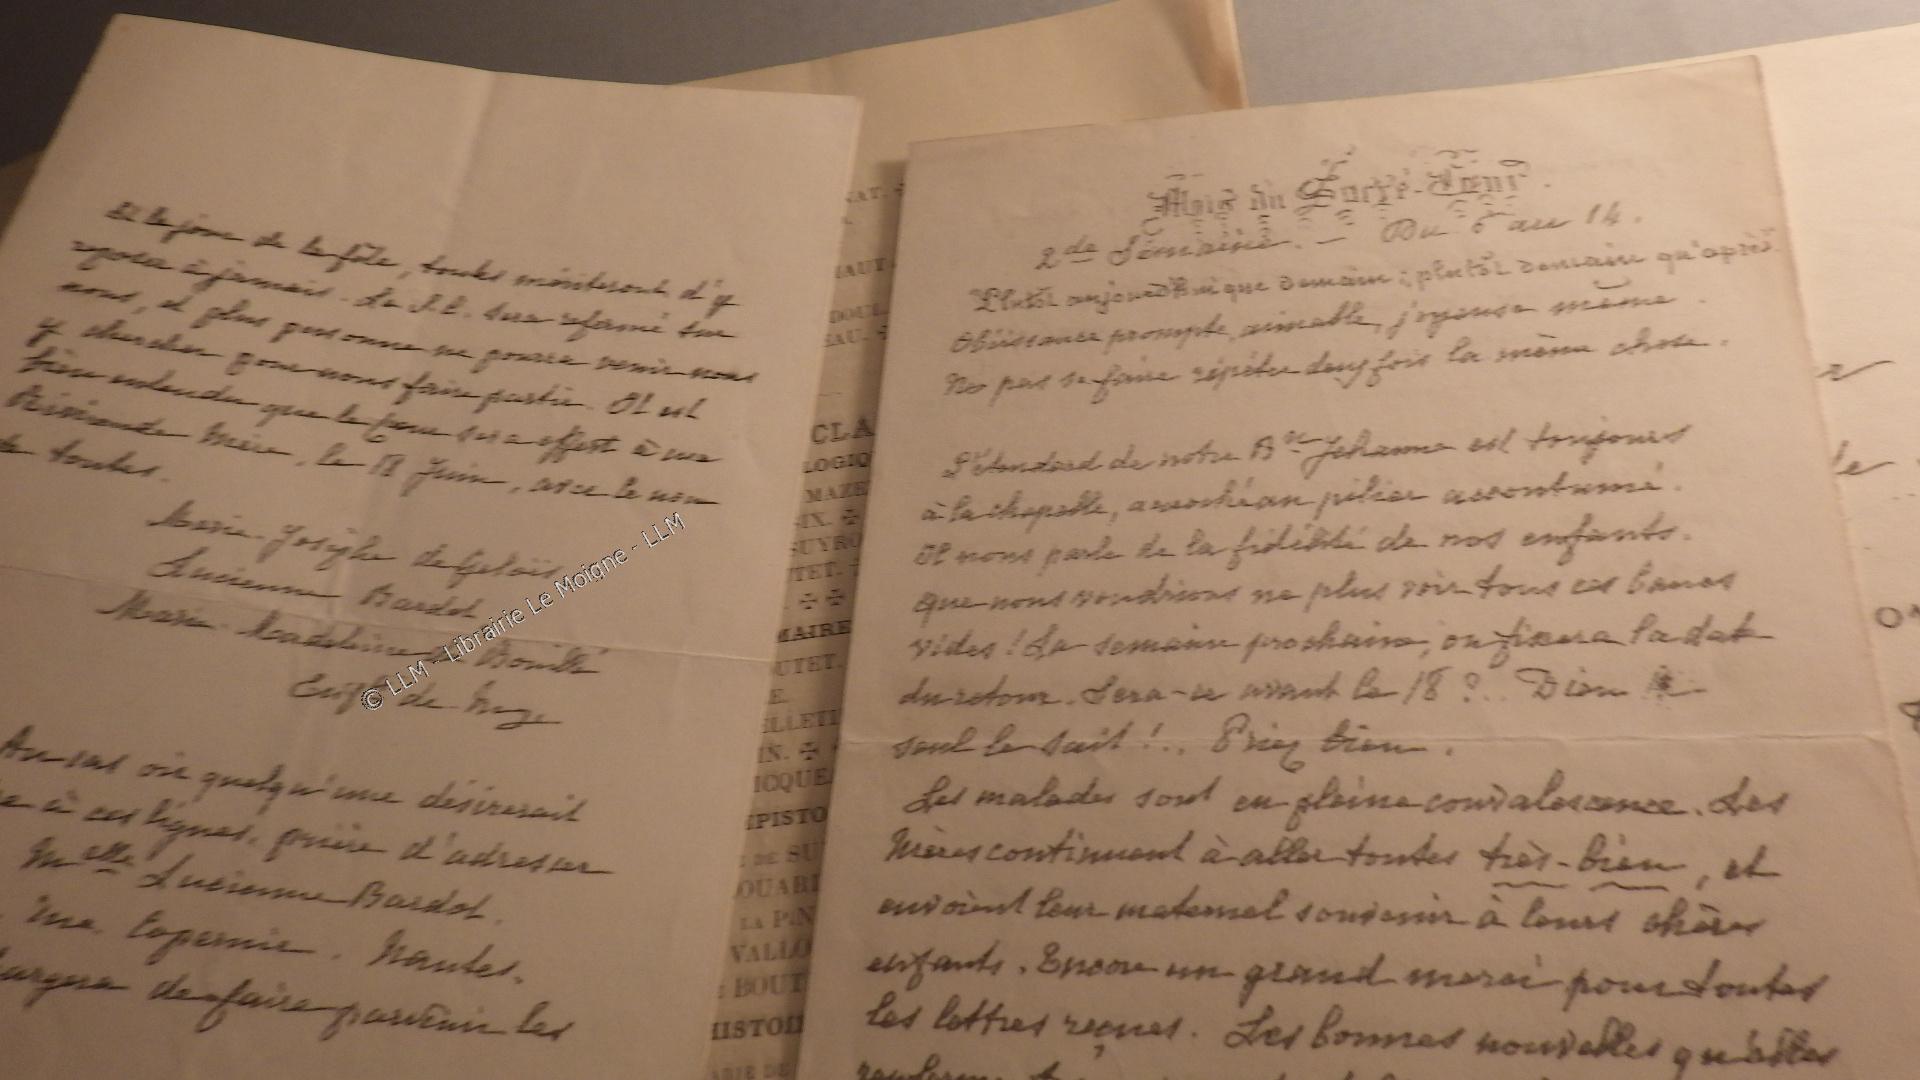 Et le jour de la fête, toutes mériteront d'y
reposer à jamais. Le S.C. sera refermé sur
nous, et plus personne ne pourra venir nous
y chercher pour nous faire partir. Il est
bien entendu que le sera offert à une
Révérende Mère, le 18 Juin, avec le nom
de toutes.
Marie-Josèphe de Geloës
Lucienne Bardot
Marie-Madeleine de Bouillé
de
Au cas où quelqu'une désirerait
à ces lignes, prière d'adresser
Melle Lucienne Bardot.
rue Copernic. Nantes.
chargera de faire parvenir les
© LLM - Librairie Le Moigne - LLM
NAT.
HAUT
DOUL
EAU.
CLA
LOGIQ
MAZE
SIX. ✠
SUYRO
TET.
✠ ✠
MAIRE
OUTET.
E.
ELLETI
IN. ✠
ICQUE
EPISTO
E DE SU
OUARD
LA PIN
VALLO
BOUT
HISTOI
ARIE DE
Mois du Sacré-Cœur.
2de Semaine. — Du 6 au 14.
Plutôt aujourd'hui que demain ; plutôt demain qu'après.
Obéissance prompte, aimable, joyeuse même.
Ne pas se faire répéter deux fois la même chose.
L'étendard de notre Bse Jehanne est toujours
à la chapelle, accroché au pilier accoutumé.
Il nous parle de la fidélité de nos enfants.
Que nous voudrions ne plus voir tous ces bancs
vides ! La semaine prochaine, on fixera la date
du retour. Sera-ce avant le 18 ?.. Dieu
seul le sait !.. Priez bien.
Les malades sont en pleine convalescence. Les
Mères continuent à aller toutes très-bien, et
envoient leur maternel souvenir à leurs chères
enfants. Encore un grand merci pour toutes
les lettres reçues. Les bonnes nouvelles qu'elles